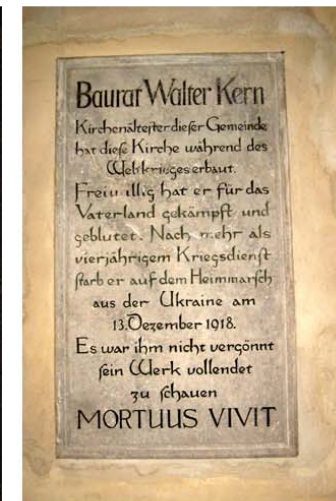 Baurat Walter Kern
Kirchenältester dieser Gemeinde
hat diese Kirche während des
Weltkrieges erbaut.
Freiwillig hat er für das
Vaterland gekämpft und
geblutet. Nach mehr als
vierjährigem Kriegsdienst
starb er auf dem Heimmarsch
aus der Ukraine am
13. Dezember 1918.
Es war ihm nicht vergönnt
sein Werk vollendet
zu schauen
MORTUUS VIVIT